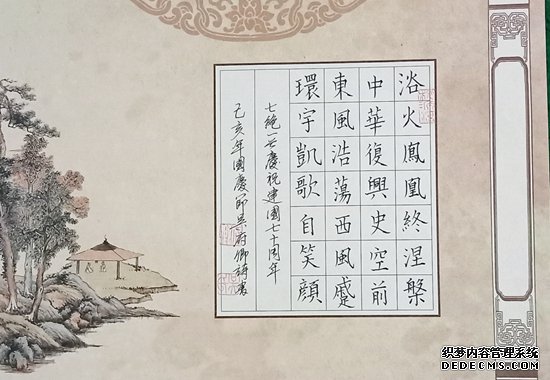 浴火鳳凰終涅槃
中華復興史空前
東風浩蕩西風蹙
環宇凱歌自笑顏
七絕一首慶祝建國七十周年
己亥年國慶節吳府卿
織梦内容管理系统
DEDECMS.COM